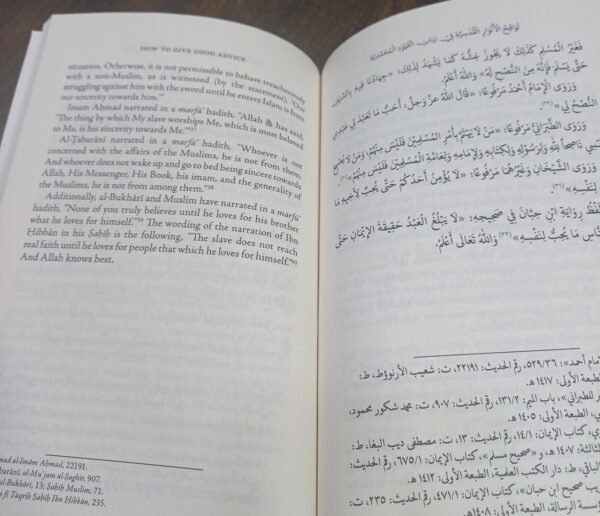 HOW TO GIVE GOOD ADVICE
situation. Otherwise, it is not permissible to behave treacherously
with a non-Muslim, as is witnessed (by the statement), “Our
struggling against him with the sword until he enters Islam is from
our sincerity towards him.”
Imam Aḥmad narrated in a marfūʿ hadith, “Allah ﷻ has said,
‘The thing by which My slave worships Me, which is most beloved
to Me, is his sincerity towards Me.’”37
Al-Ṭabarānī narrated in a marfūʿ hadith, “Whoever is not
concerned with the affairs of the Muslims, he is not from them.
And whoever does not wake up and go to bed being sincere towards
Allah, His Messenger, His Book, his imam, and the generality of
the Muslims, he is not from among them.”38
Additionally, al-Bukhārī and Muslim have narrated in a marfūʿ
hadith, “None of you truly believes until he loves for his brother
what he loves for himself.”39 The wording of the narration of Ibn
Ḥibbān in his Ṣaḥīḥ is the following, “The slave does not reach
real faith until he loves for people that which he loves for himself.”40
And Allah knows best.
al-Imām Aḥmad, 22191.
al-Muʿjam al-Ṣaghīr, 907.
al-Bukhārī, 13; Ṣaḥīḥ Muslim, 71.
fī Taqrīb Ṣaḥīḥ Ibn Ḥibbān, 235.
لَوَاقِحُ الْأَنْوَارِ الْقُدْسِيَّةِ فِي بَيَانِ الْعُهُودِ الْمُحَمَّدِيَّةِ
فَغَيْرُ الْمُسْلِمِ كَذَلِكَ لَا يَجُوزُ غِشُّهُ كَمَا يَشْهَدُ لِذَلِكَ: «جِهَادُنَا فِيهِ بِالسَّيْفِ
حَتَّى يُسْلِمَ فَإِنَّهُ مِنَ النُّصْحِ لَهُ» وَاللهُ أَعْلَمُ.
وَرَوَى الْإِمَامُ أَحْمَدُ مَرْفُوعًا: «قَالَ اللهُ عَزَّ وَجَلَّ: أَحَبُّ مَا تَعَبَّدَ لِي عَبْدِي
النُّصْحُ لِي»(٢٩).
وَرَوَى الطَّبَرَانِيُّ مَرْفُوعًا: «مَنْ لَا يَهْتَمُّ بِأَمْرِ الْمُسْلِمِينَ فَلَيْسَ مِنْهُمْ، وَمَنْ لَا يُصْبِحُ
نَاصِحًا لِلَّهِ وَلِرَسُولِهِ وَلِكِتَابِهِ وَلِإِمَامِهِ وَلِعَامَّةِ الْمُسْلِمِينَ فَلَيْسَ مِنْهُمْ»
وَرَوَى الشَّيْخَانِ وَغَيْرُهُمَا مَرْفُوعًا: «لَا يُؤْمِنُ أَحَدُكُمْ حَتَّى يُحِبَّ لِأَخِيهِ مَا
لِنَفْسِهِ»(٣١).
رِوَايَةِ ابْنِ حِبَّانَ فِي صَحِيحِهِ: «لَا يَبْلُغُ الْعَبْدُ حَقِيقَةَ الْإِيمَانِ حَتَّى
مَا يُحِبُّ لِنَفْسِهِ»(٣٢) وَاللهُ تَعَالَى أَعْلَمُ.
أحمد»: ٥٢٩/٣٦، رقم الحديث: ٢٢١٩١، ت: شعيب الأرنؤوط، ط:
الطبعة الأولى: ١٤١٧ هـ.
للطبراني»، باب الميم: ١٣١/٢، رقم الحديث: ٩٠٧، ت: محمد شكور محمود،
الطبعة الأولى: ١٤٠٥ هـ.
كتاب الإيمان: ١٤/١، رقم الحديث: ١٣، ت: مصطفى ديب البغا، ط:
الثالثة: ١٤٠٧ هـ، و «صحيح مسلم»، كتاب الإيمان: ٦٧٥/١، رقم الحديث:
الباقي، ط: دار الكتب العلمية، الطبعة الأولى: ١٤١٢ هـ.
صحيح ابن حبان»، كتاب الإيمان: ٤٧١/١، رقم الحديث: ٢٣٥، ت:
الرسالة، الطبعة الأولى: ١٤٠٨ هـ.